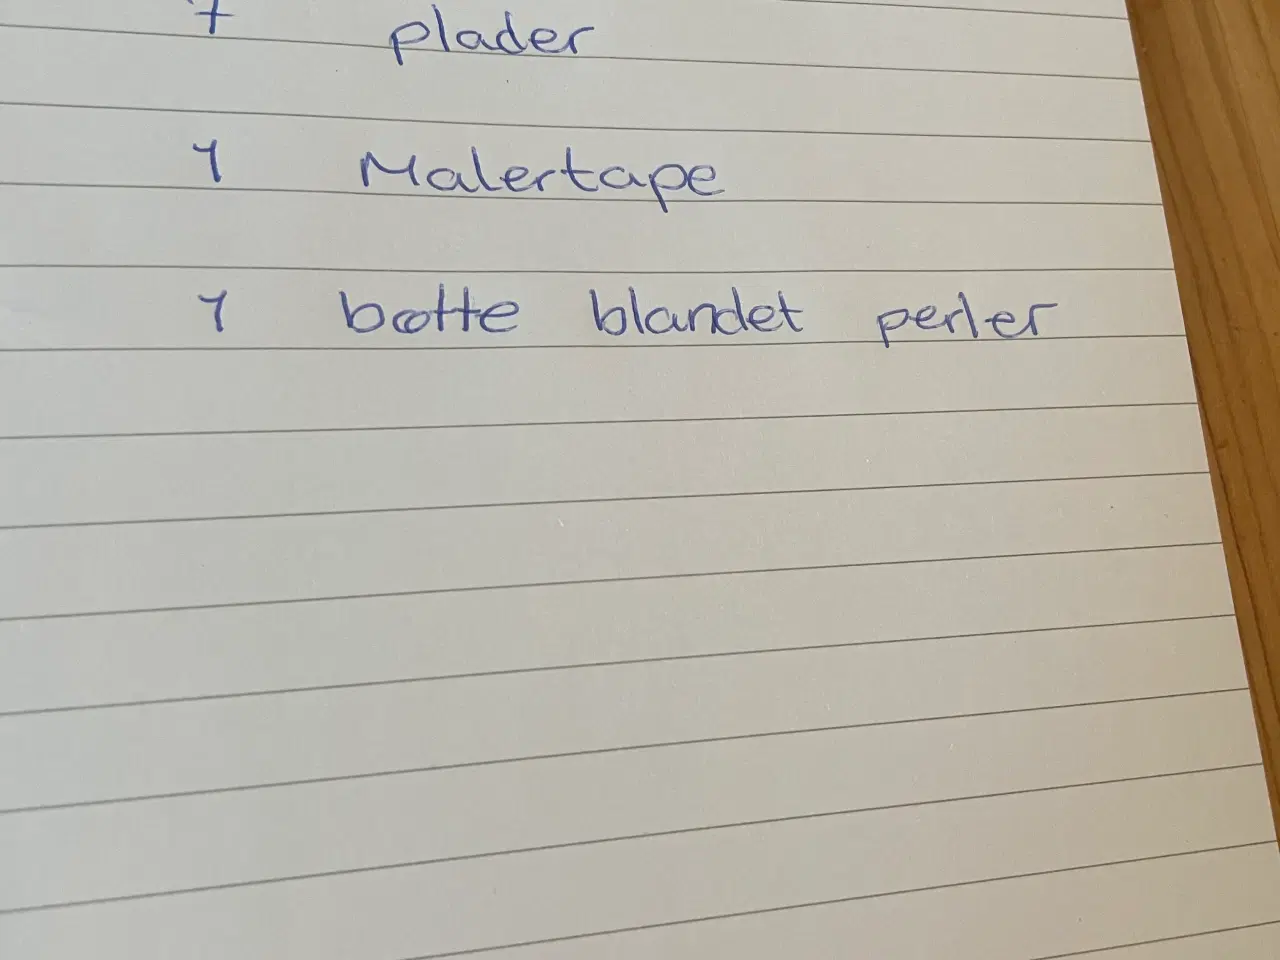 7 plader
1 Malertape
1 bøtte blandet perler